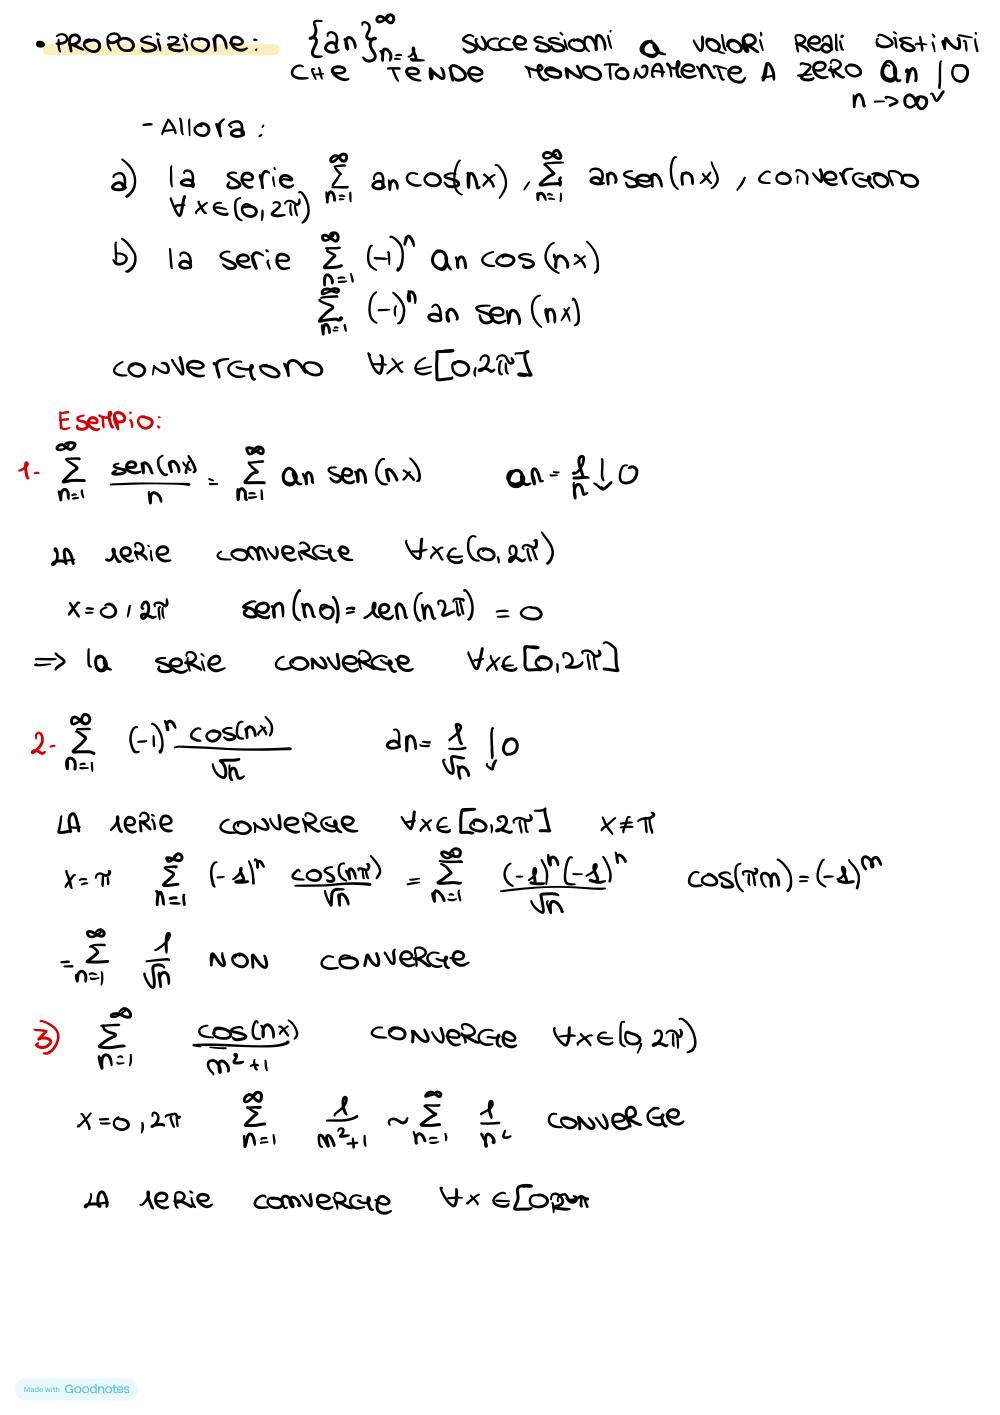 • PROPOSIZIONE: {an}_{n=1}^∞ successioni a valori reali distinti
che tende monotonamente a zero an ↓ 0
n → ∞
- Allora:
a) la serie ∑_{n=1}^∞ an cos(nx), ∑_{n=1}^∞ an sen(nx), convergono
∀x∈(0,2π)
b) la serie ∑_{n=1}^∞ (-1)^n an cos(nx)
∑_{n=1}^∞ (-1)^n an sen(nx)
convergono ∀x∈[0,2π]
Esempio:
1- ∑_{n=1}^∞ sen(nx)/n = ∑_{n=1}^∞ an sen(nx) an = 1/n ↓ 0
la serie converge ∀x∈(0,2π)
x=0,2π sen(n0) = sen(n2π) = 0
=> la serie converge ∀x∈[0,2π]
2- ∑_{n=1}^∞ (-1)^n cos(nx)/√n an = 1/√n ↓ 0
la serie converge ∀x∈[0,2π] x≠π
x=π ∑_{n=1}^∞ (-1)^n cos(nπ)/√n = ∑_{n=1}^∞ (-1)^n(-1)^n/√n cos(πm)=(-1)^m
= ∑_{n=1}^∞ 1/√n non converge
3) ∑_{n=1}^∞ cos(nx)/m²+1 converge ∀x∈(0,2π)
x=0,2π ∑_{n=1}^∞ 1/m²+1 ~ ∑_{n=1}^∞ 1/n² converge
la serie converge ∀x∈[0,2π
Made with Goodnotes